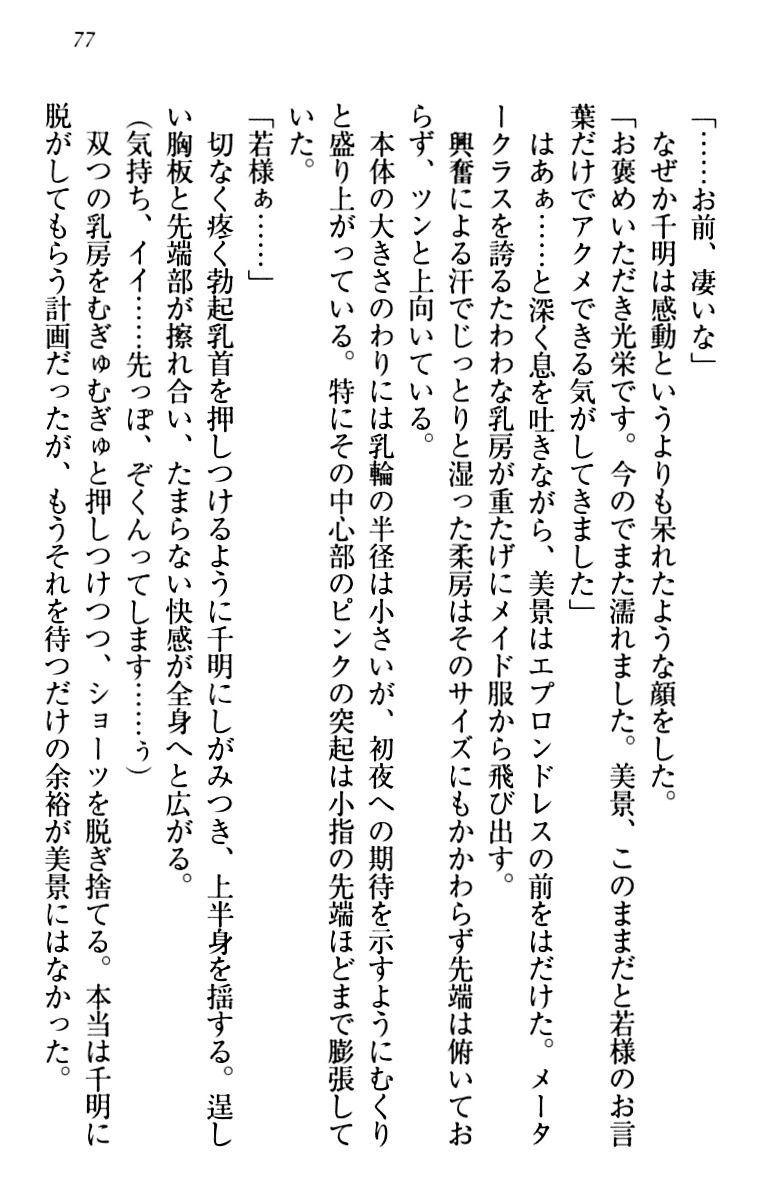 77
「……お前、凄いな」
なぜか千明は感動というよりも呆れたような顔をした。
「お褒めいただき光栄です。今のでまた濡れました。美景、このままだと若様のお言
葉だけでアクメできる気がしてきました」
はあぁ……と深く息を吐きながら、美景はエプロンドレスの前をはだけた。メータ
ークラスを誇るたわわな乳房が重たげにメイド服から飛び出す。
興奮による汗でじっとりと湿った柔房はそのサイズにもかかわらず先端は俯いてお
らず、ツンと上向いている。
本体の大きさのわりには乳輪の半径は小さいが、初夜への期待を示すようにむくり
と盛り上がっている。特にその中心部のピンクの突起は小指の先端ほどまで膨張して
いた。
「若様ぁ……」
切なく疼く勃起乳首を押しつけるように千明にしがみつき、上半身を揺する。逞し
い胸板と先端部が擦れ合い、たまらない快感が全身へと広がる。
（気持ち、イイ……先っぽ、ぞくんってします……ぅ）
双つの乳房をむぎゅむぎゅと押しつけつつ、ショーツを脱ぎ捨てる。本当は千明に
脱がしてもらう計画だったが、もうそれを待つだけの余裕が美景にはなかった。